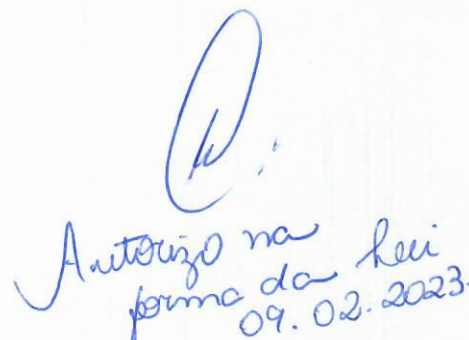 Autorizo na
forma da Lei
09.02.2023.